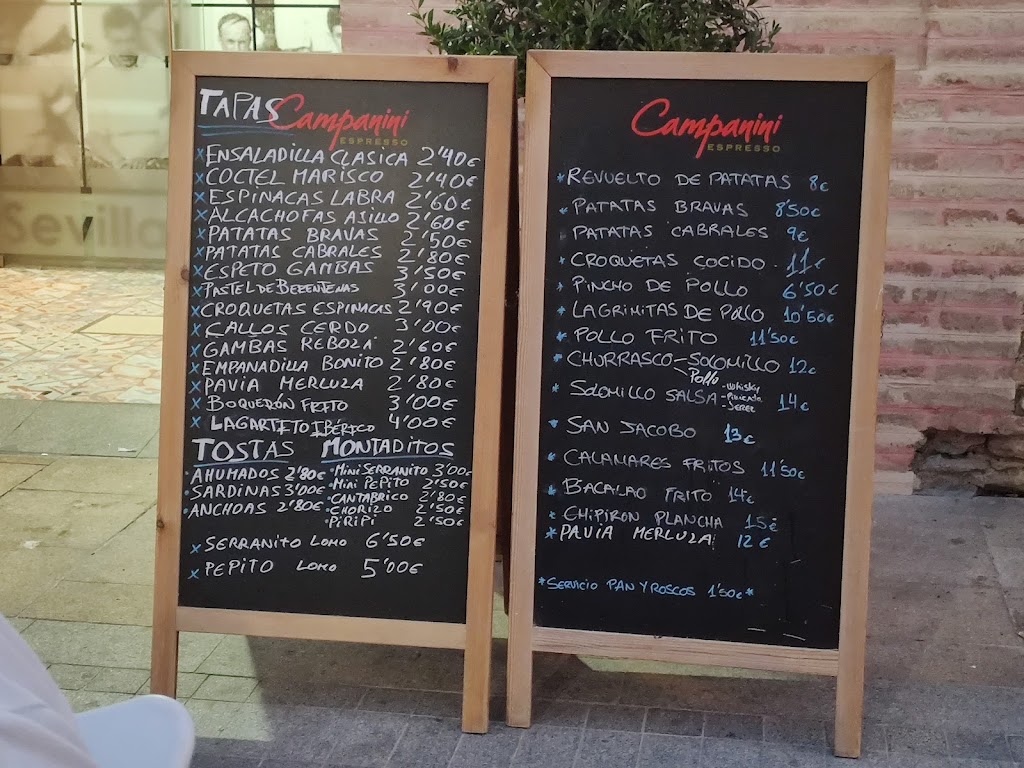 Sevilla
TAPAS Campanini
ESPRESSO
x ENSALADILLA CLASICA 2'40€
x COCTEL MARISCO 2'40€
x ESPINACAS LABRA 2'60€
x ALCACHOFAS AJILLO 2'60€
x PATATAS BRAVAS 2'50€
x PATATAS CABRALES 2'80€
x ESPETO GAMBAS 3'50€
x PASTEL DE BERENTENAS 3'00€
x CROQUETAS ESPINACAS 2'90€
x CALLOS CERDO 3'00€
x GAMBAS REBOZÁ 2'60€
x EMPANADILLA BONITO 2'80€
x PAVIA MERLUZA 2'80€
x BOQUERÓN FRITO 3'00€
x LAGARTITO IBÉRICO 4'00€
TOSTAS
• AHUMADOS 2'80€
• SARDINAS 3'00€
• ANCHOAS 2'80€
MONTADITOS
• MINI SERRANITO 3'00€
• MINI PEPITO 2'50€
• CANTABRICO 2'80€
• CHORIZO 2'50€
• PIRIPI 2'50€
x SERRANITO LOMO 6'50€
x PEPITO LOMO 5'00€
Campanini
ESPRESSO
* REVUELTO DE PATATAS 8€
* PATATAS BRAVAS 8'50€
PATATAS CABRALES 9€
* CROQUETAS COCIDO 11€
* PINCHO DE POLLO 6'50€
* LAGRIMITAS DE POLLO 10'50€
* POLLO FRITO 11'50€
* CHURRASCO - SOLOMILLO 12€
Pollo
* SOLOMILLO SALSA - Whisky 14€
- Pimienta
- Jerez
* SAN JACOBO 13€
* CALAMARES FRITOS 11'50€
* BACALAO FRITO 14€
* CHIPIRON PLANCHA 15€
* PAVIA MERLUZA 12€
* SERVICIO PAN Y ROSCOS 1'50€ *